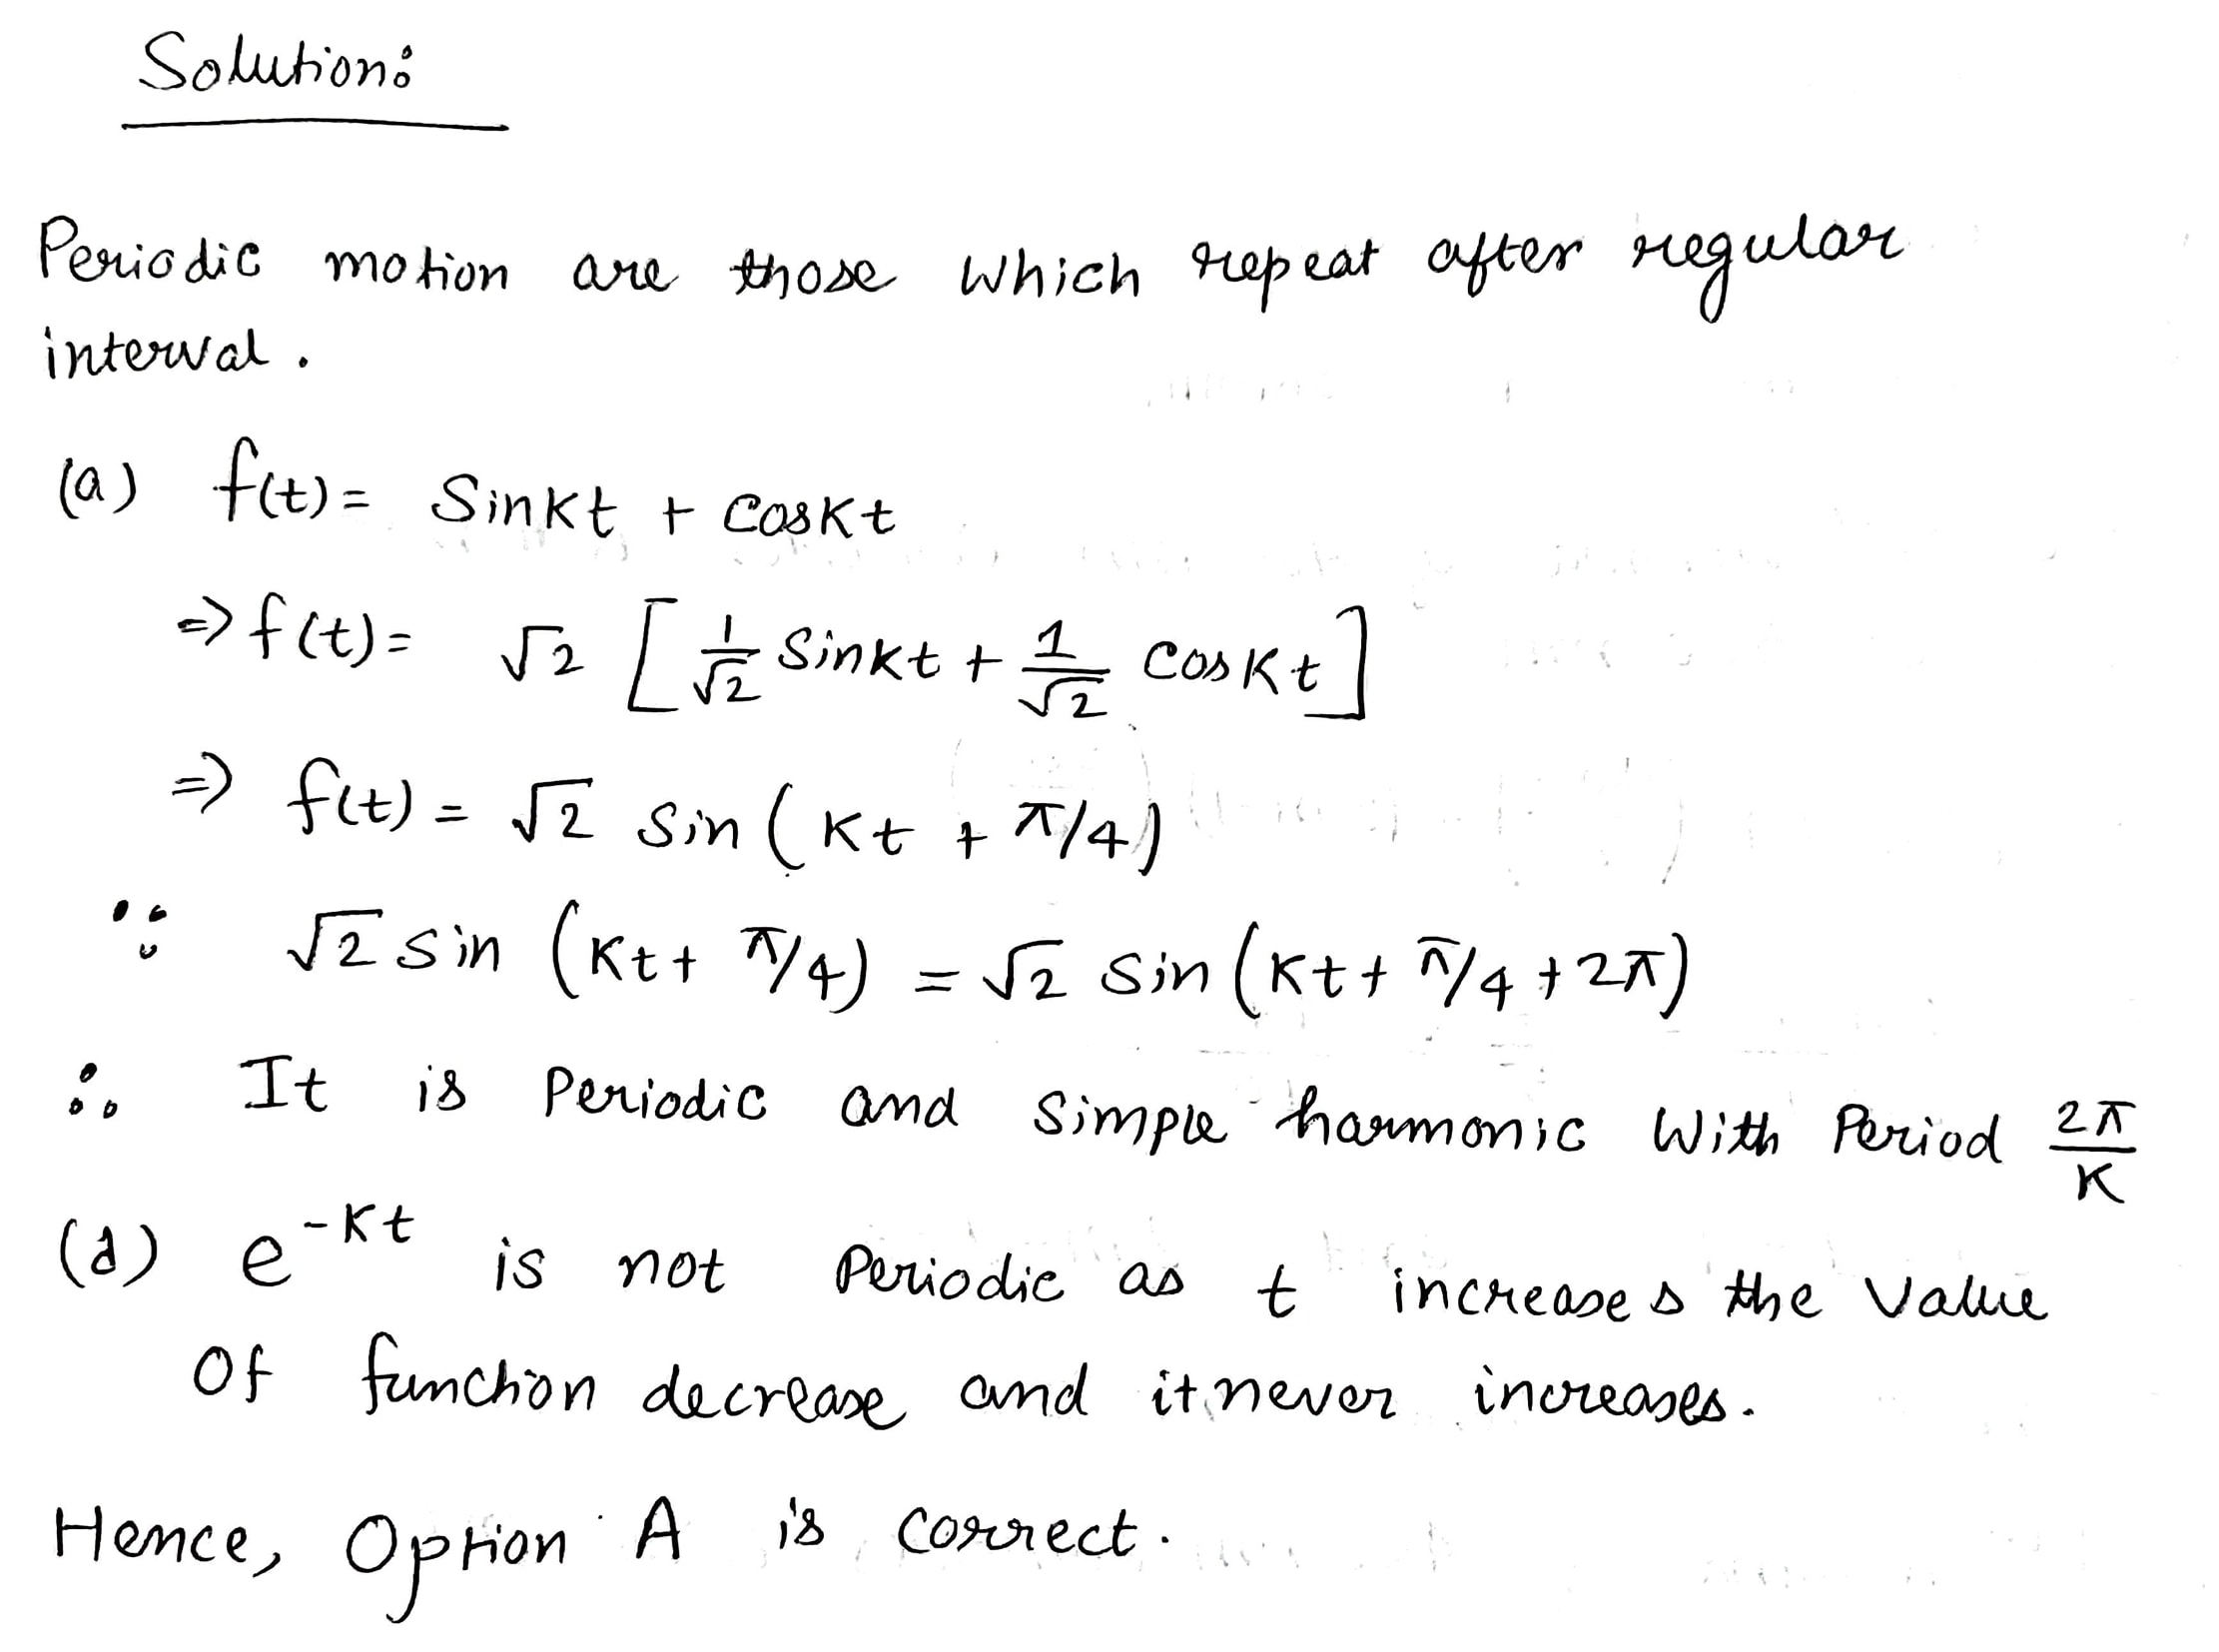 Solution:
Periodic motion are those which repeat after regular
interval.
(a) f(t) = Sinkt + Coskt
=> f(t) = √2 [1/√2 Sinkt + 1/√2 Coskt]
=> f(t) = √2 Sin(Kt + π/4)
∵ √2 Sin (Kt + π/4) = √2 Sin (Kt + π/4 + 2π)
∴ It is Periodic and Simple harmonic With Period 2π/K
(d) e^-Kt is not Periodic as t increases the Value
Of function decrease and it never increases.
Hence, Option A is Correct.